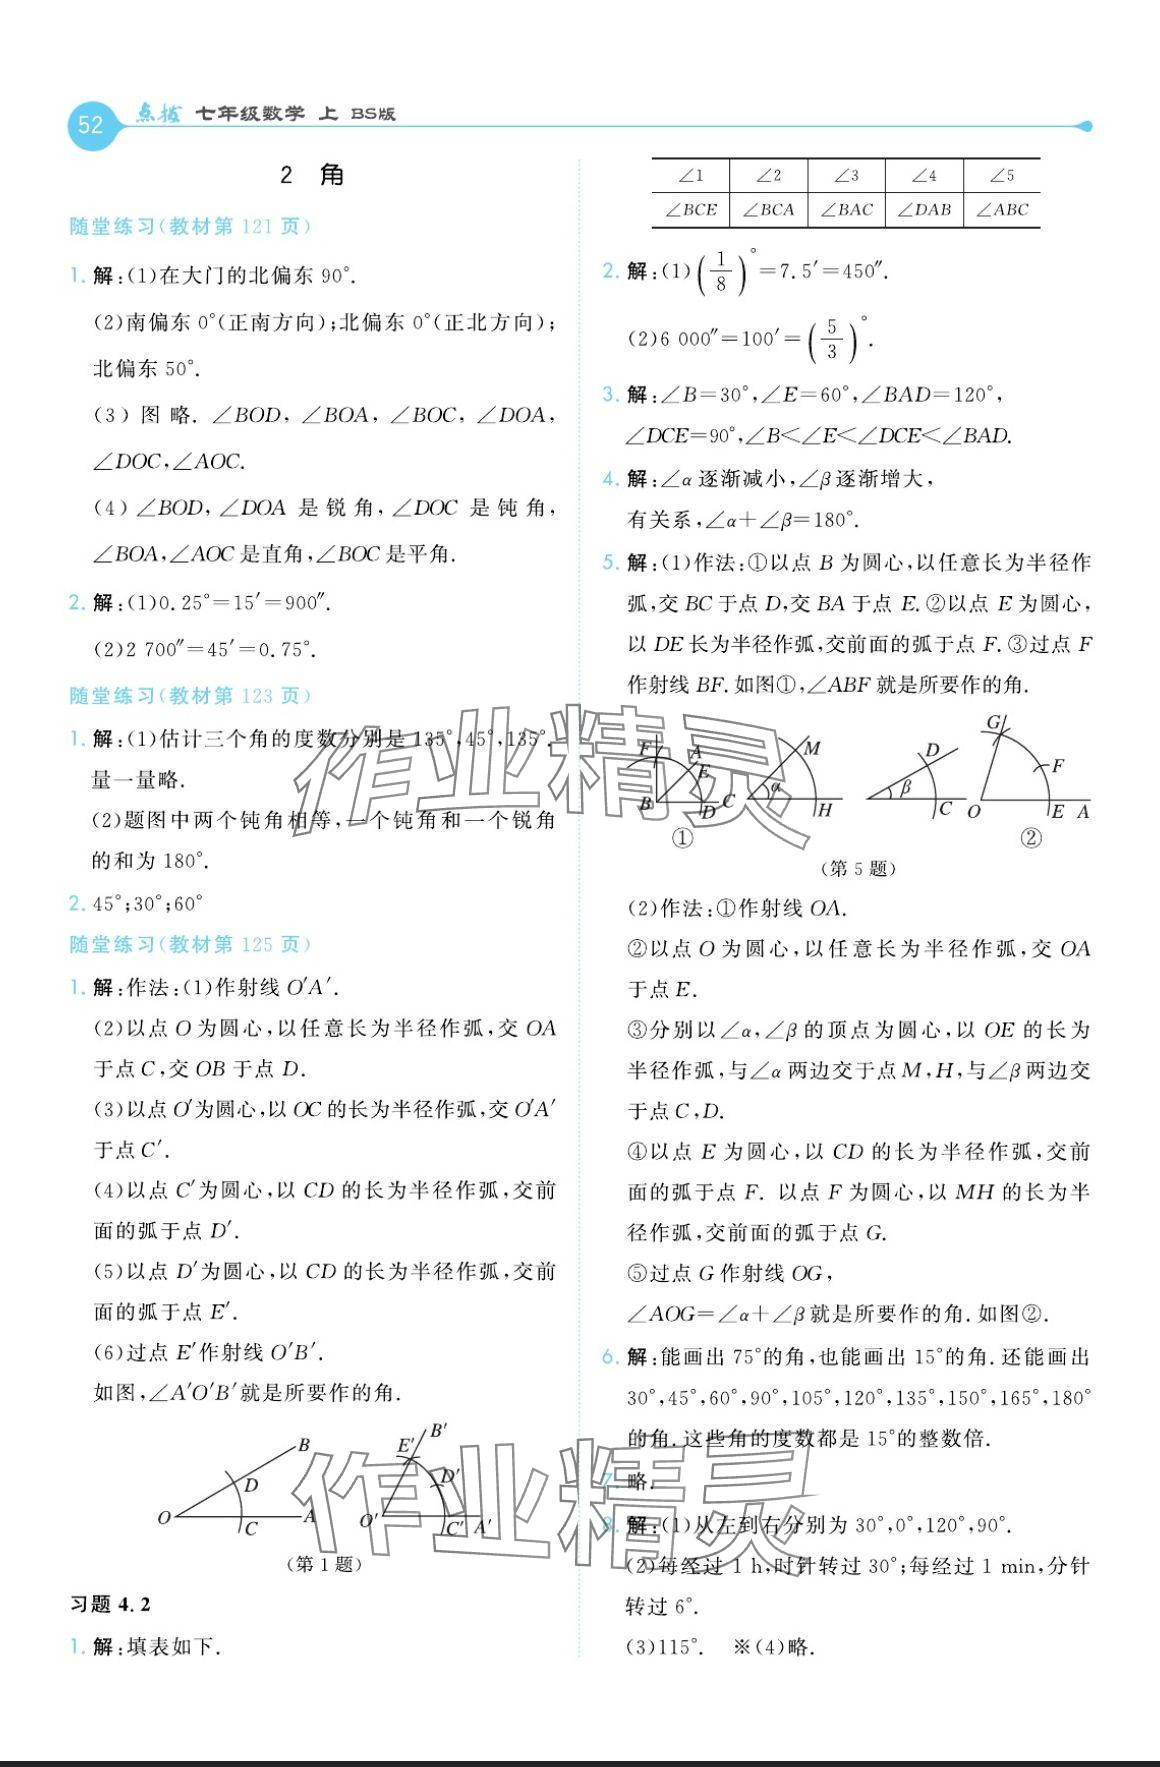 52
点拨 七年级数学 上 BS版
2 角
随堂练习(教材第 121 页)
1. 解:(1)在大门的北偏东 90°.
(2)南偏东 0°(正南方向);北偏东 0°(正北方向);
北偏东 50°.
(3) 图 略. ∠BOD, ∠BOA, ∠BOC, ∠DOA,
∠DOC,∠AOC.
(4) ∠BOD, ∠DOA 是 锐 角, ∠DOC 是 钝 角,
∠BOA,∠AOC 是直角,∠BOC 是平角.
2. 解:(1)0.25°=15′=900″.
(2)2 700″=45′=0.75°.
随堂练习(教材第 123 页)
1. 解:(1)估计三个角的度数分别是 135°,45°,135°.
量一量略.
(2)题图中两个钝角相等,一个钝角和一个锐角
的和为 180°.
2. 45°;30°;60°
随堂练习(教材第 125 页)
1. 解:作法:(1)作射线 O′A′.
(2)以点 O 为圆心,以任意长为半径作弧,交 OA
于点 C,交 OB 于点 D.
(3)以点 O′为圆心,以 OC 的长为半径作弧,交 O′A′
于点 C′.
(4)以点 C′为圆心,以 CD 的长为半径作弧,交前
面的弧于点 D′.
(5)以点 D′为圆心,以 CD 的长为半径作弧,交前
面的弧于点 E′.
(6)过点 E′作射线 O′B′.
如图,∠A′O′B′就是所要作的角.
B
D
O
C
A
B′
E′
D′
O′
C′ A′
(第 1 题)
习题 4.2
1. 解:填表如下.
∠1 ∠2 ∠3 ∠4 ∠5
∠BCE ∠BCA ∠BAC ∠DAB ∠ABC
2. 解:(1)(1/8)°=7.5′=450″.
(2)6 000″=100′=(5/3)°.
3. 解:∠B=30°,∠E=60°,∠BAD=120°,
∠DCE=90°,∠B<∠E<∠DCE<∠BAD.
4. 解:∠α 逐渐减小,∠β 逐渐增大,
有关系,∠α+∠β=180°.
5. 解:(1)作法:①以点 B 为圆心,以任意长为半径作
弧,交 BC 于点 D,交 BA 于点 E.②以点 E 为圆心,
以 DE 长为半径作弧,交前面的弧于点 F.③过点 F
作射线 BF.如图①,∠ABF 就是所要作的角.
F A
E
B D C
①
M
α
H
D
β
C
G
F
O E A
②
(第 5 题)
(2)作法:①作射线 OA.
②以点 O 为圆心,以任意长为半径作弧,交 OA
于点 E.
③分别以∠α,∠β 的顶点为圆心,以 OE 的长为
半径作弧,与∠α 两边交于点 M,H,与∠β 两边交
于点 C,D.
④以点 E 为圆心,以 CD 的长为半径作弧,交前
面的弧于点 F. 以点 F 为圆心,以 MH 的长为半
径作弧,交前面的弧于点 G.
⑤过点 G 作射线 OG,
∠AOG=∠α+∠β 就是所要作的角.如图②.
6. 解:能画出 75°的角,也能画出 15°的角.还能画出
30°,45°,60°,90°,105°,120°,135°,150°,165°,180°
的角.这些角的度数都是 15°的整数倍.
7. 略.
8. 解:(1)从左到右分别为 30°,0°,120°,90°.
(2)每经过 1 h,时针转过 30°;每经过 1 min,分针
转过 6°.
(3)115°. ※(4)略.
作业精灵
作业精灵